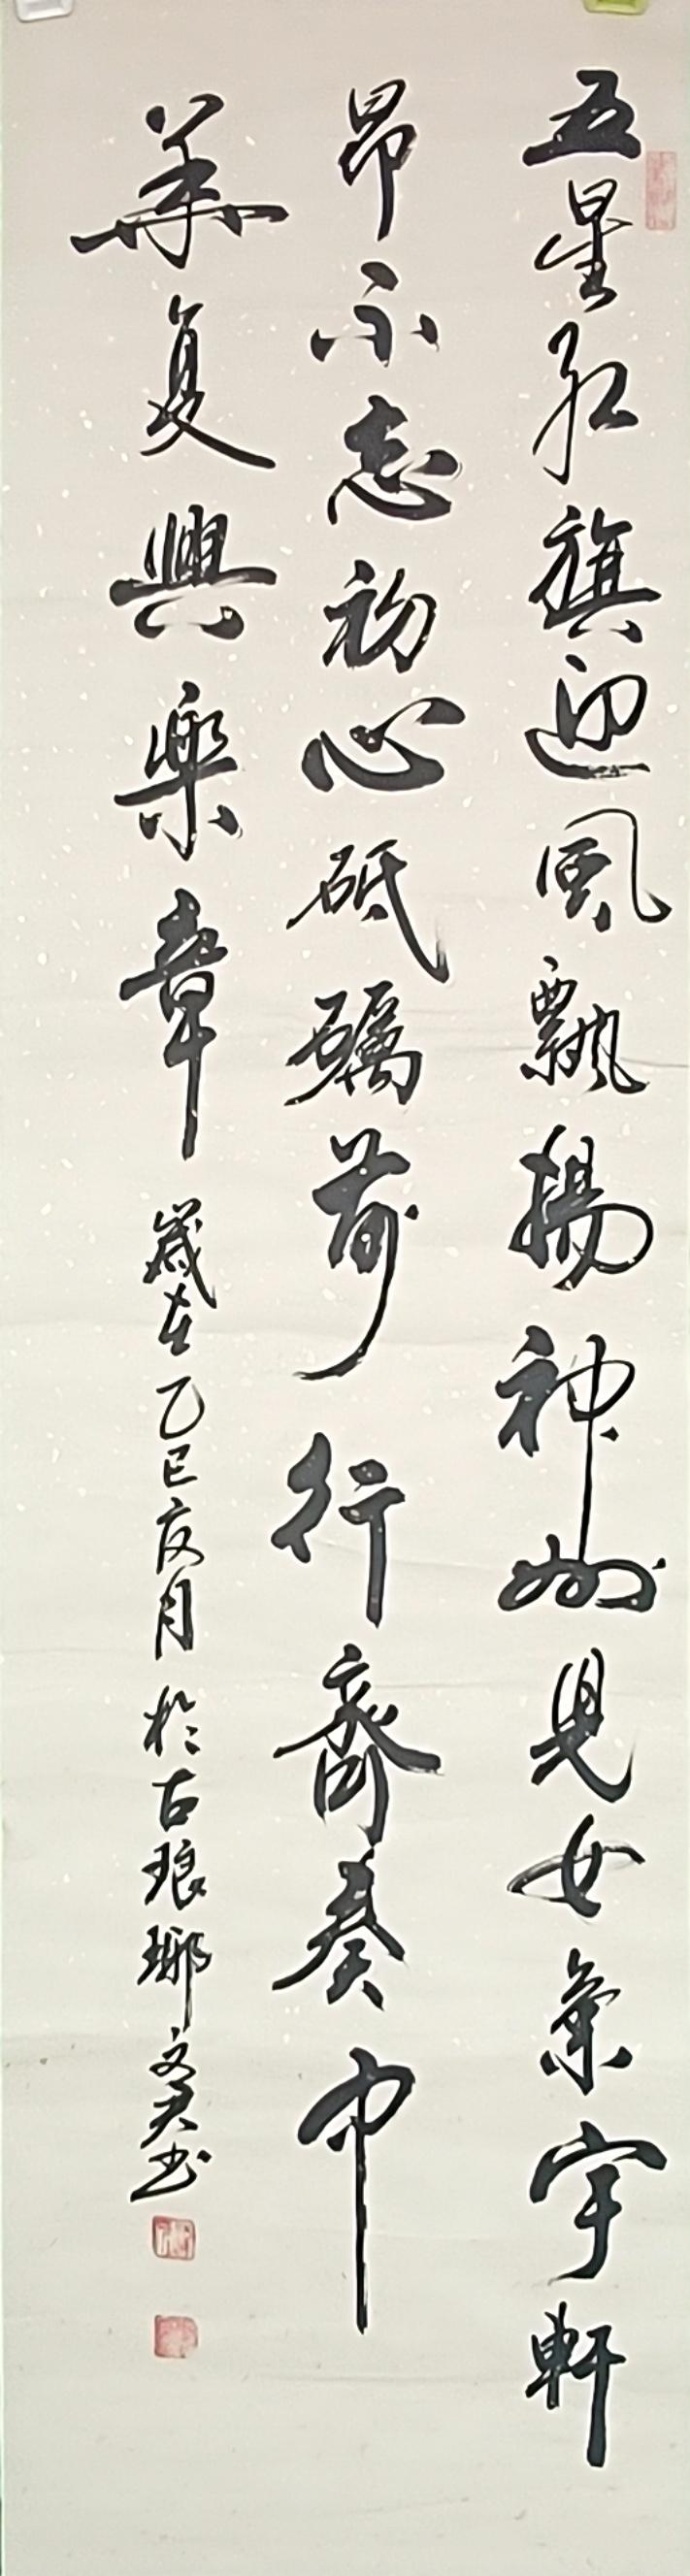 五星红旗迎風飘揚神州児女氣宇軒
昂不忘初心砥礪前行齊奏中
華复興樂章 歲在乙巳夜月於古琅琊文君书